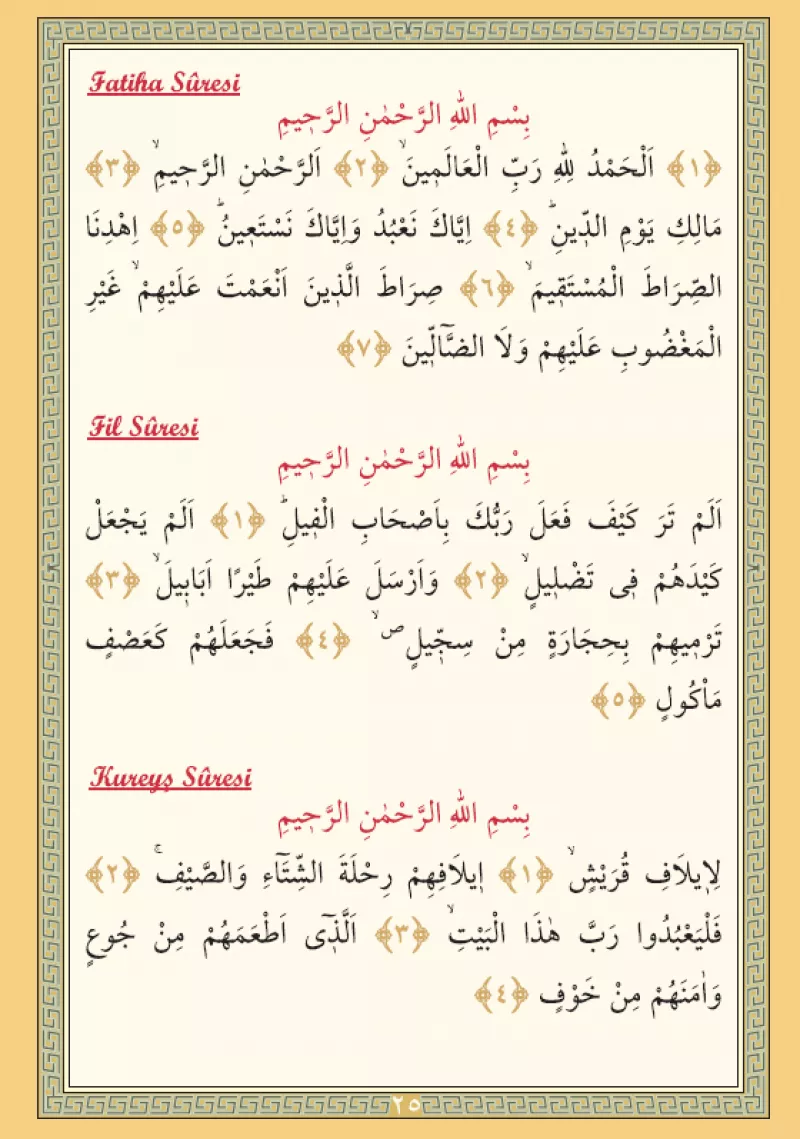 Fatiha Sûresi
بِسْمِ اللّٰهِ الرَّحْمٰنِ الرَّح۪يمِ
﴿١﴾ اَلْحَمْدُ لِلّٰهِ رَبِّ الْعَالَم۪ينَۙ ﴿٢﴾ اَلرَّحْمٰنِ الرَّح۪يمِۙ ﴿٣﴾
مَالِكِ يَوْمِ الدّ۪ينِۜ ﴿٤﴾ اِيَّاكَ نَعْبُدُ وَاِيَّاكَ نَسْتَع۪ينُۜ ﴿٥﴾ اِهْدِنَا
الصِّرَاطَ الْمُسْتَق۪يمَۙ ﴿٦﴾ صِرَاطَ الَّذ۪ينَ اَنْعَمْتَ عَلَيْهِمْۙ غَيْرِ
الْمَغْضُوبِ عَلَيْهِمْ وَلَا الضَّٓالّ۪ينَ ﴿٧﴾
Fil Sûresi
بِسْمِ اللّٰهِ الرَّحْمٰنِ الرَّح۪يمِ
اَلَمْ تَرَ كَيْفَ فَعَلَ رَبُّكَ بِاَصْحَابِ الْف۪يلِۜ ﴿١﴾ اَلَمْ يَجْعَلْ
كَيْدَهُمْ ف۪ي تَضْل۪يلٍۙ ﴿٢﴾ وَاَرْسَلَ عَلَيْهِمْ طَيْرًا اَبَاب۪يلَۙ ﴿٣﴾
تَرْم۪يهِمْ بِحِجَارَةٍ مِنْ سِجّ۪يلٍۖۙ ﴿٤﴾ فَجَعَلَهُمْ كَعَصْفٍ
مَأْكُولٍ ﴿٥﴾
Kureyş Sûresi
بِسْمِ اللّٰهِ الرَّحْمٰنِ الرَّح۪يمِ
لِا۪يلَافِ قُرَيْشٍۙ ﴿١﴾ ا۪يلَافِهِمْ رِحْلَةَ الشِّتَٓاءِ وَالصَّيْفِۚ ﴿٢﴾
فَلْيَعْبُدُوا رَبَّ هٰذَا الْبَيْتِۙ ﴿٣﴾ اَلَّذ۪ٓي اَطْعَمَهُمْ مِنْ جُوعٍ
وَاٰمَنَهُمْ مِنْ خَوْفٍ ﴿٤﴾
٢٥